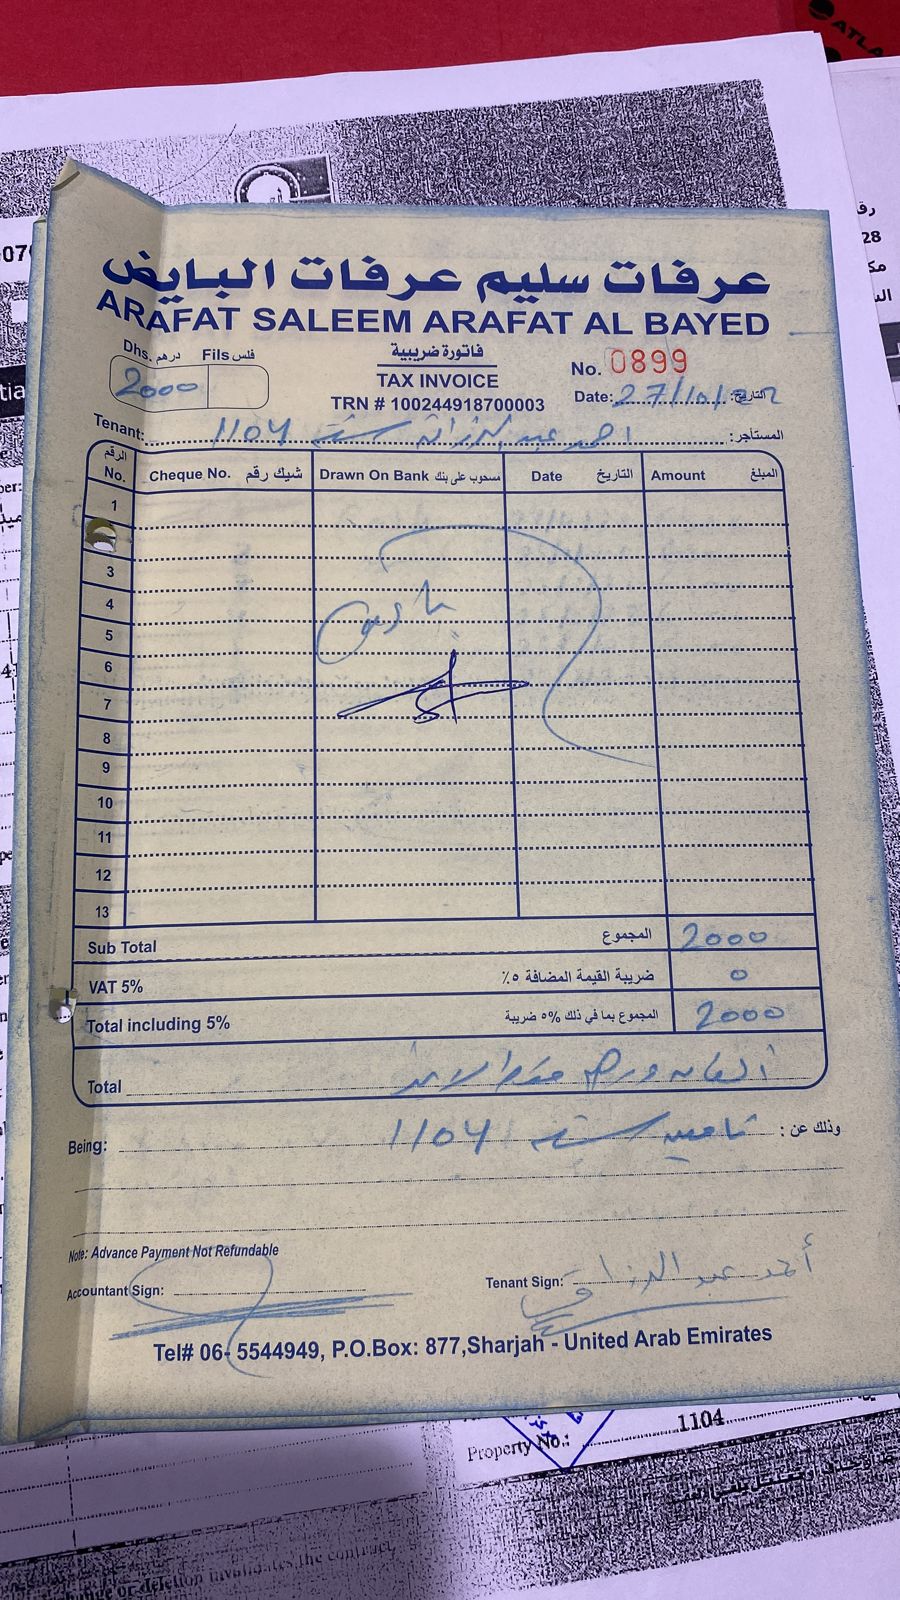 ATLA
عرفات سليم عرفات البايض
ARAFAT SALEEM ARAFAT AL BAYED
Dhs. درهم Fils فلس
2000
فاتورة ضريبية
TAX INVOICE
TRN # 100244918700003
No. 0899
Date: 27/10/ التاريخ:
Tenant: احمد عبد الرزاق شقة 1104 المستأجر:
الرقم No. Cheque No. شيك رقم Drawn On Bank مسحوب على بنك Date التاريخ Amount المبلغ
1
3
4
5
6
7
8
9
10
11
12
13
Sub Total المجموع 2000
VAT 5% ضريبة القيمة المضافة ٥٪ 0
Total including 5% المجموع بما في ذلك ٥% ضريبة 2000
Total درهم
Being: تامين شقة 1104 وذلك عن:
Note: Advance Payment Not Refundable
Accountant Sign: Tenant Sign: أحمد عبد الرزاق
Tel# 06- 5544949, P.O.Box: 877,Sharjah - United Arab Emirates
Property No.: 1104
deletion invalidates the contract.